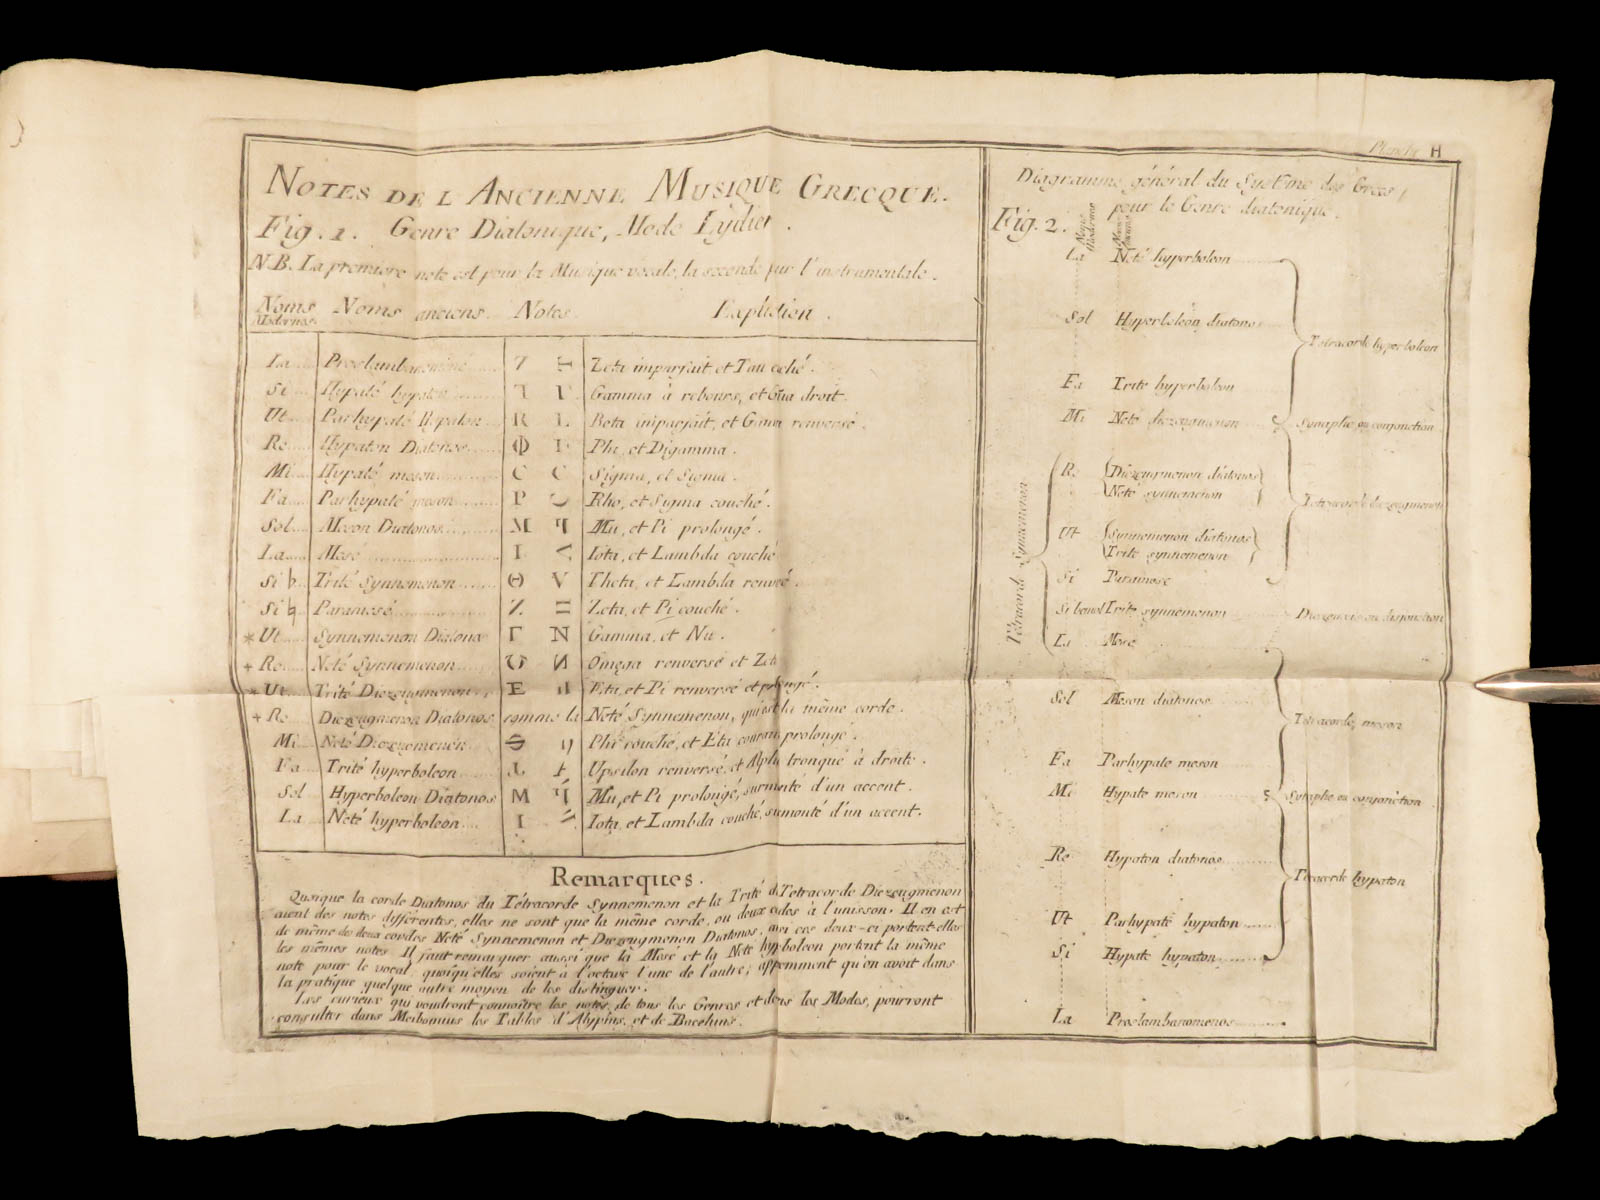 Planche H
NOTES DE L ANCIENNE MUSIQUE GRECQUE.
Fig. 1. Genre Diatonique, Mode Lydien.
N.B. La premiere note est pour la Musique vocale, la seconde pur l'instrumentale.
Noms Modernes. Noms anciens. Notes. Explication.
La Proslambanomené Zeta imparfait et Tau couché.
Si Hypaté hypaton Γ Gamma à rebours, et Gamma droit.
Ut Parhypaté Hypaton R L Beta imparfait, et Gamma renversé.
Re Hypaton Diatonos Φ F Phi, et Digamma.
Mi Hypaté meson C C Sigma, et Sigma.
Fa Parhypaté meson P Rho, et Sigma couché.
Sol Meson Diatonos M Mu, et Pi prolongé.
La Mese I < Iota, et Lambda couché
Si ♭ Trité Synnemenon Θ V Theta, et Lambda renvsé.
Si ♮ Paramesé Z Zeta, et Pi couché.
* Ut Synnemenon Diatonos Γ N Gamma, et Nu.
+ Re Neté Synnemenon Omega renversé et Zeta
* Ut Trité Diezeugmenon E Eta, et Pi renversé et prolongé.
+ Re Diezeugmenon Diatonos comme la Neté Synnemenon, qui est la même corde.
Mi Neté Diezeugmenon Phi couché, et Eta courant prolongé.
Fa Trité hyperboleon Upsilon renversé, et Alpha tronqué à droite.
Sol Hyperboleon Diatonos M Mu, et Pi prolongé, surmonté d'un accent.
La Neté hyperboleon I Iota, et Lambda couché, surmonté d'un accent.
Remarques.
Quoique la corde Diatonos du Tétracorde Synnemenon et la Trité du Tetracorde Diezeugmenon
aient des notes différentes, elles ne sont que la même corde, ou deux cordes à l'unisson. Il en est
de même des deux cordes Neté Synnemenon et Diezeugmenon Diatonos, ces deux-ci portent-elles
les mêmes notes. Il faut remarquer aussi que la Mese et la Neté hyperboleon portent la même
note pour le vocal, quoiqu'elles soient à l'octave l'une de l'autre; apparemment qu'on avoit dans
la pratique quelque autre moyen de les distinguer.
Les curieux qui voudront connoitre les notes de tous les Genres et de tous les Modes, pourront
consulter dans Meibomius les Tables d'Alypius, et de Bacchius.
Diagramme général du Systême des Grecs,
pour le Genre diatonique.
Fig. 2.
Noms Modernes Noms Anciens
La Neté hyperboleon
Sol Hyperboleon diatonos
Tetracorde hyperboleon
Fa Trite hyperboleon
Mi Neté diezeugmenon
Synaphe ou conjonction
Re Diezeugmenon diatonos
Neté synnemenon
Tetracorde diezeugmenon
Ut Synnemenon diatonos
Trite synnemenon
Si Paramese
Si bemol Trite synnemenon
Diezeuxis ou disjonction
La Mese
Tétracorde Synnemenon
Sol Meson diatonos
Tetracorde meson
Fa Parhypate meson
Mi Hypate meson
Synaphe ou conjonction
Re Hypaton diatonos
Tetracorde hypaton
Ut Parhypaté hypaton
Si Hypate hypaton
La Proslambanomenos